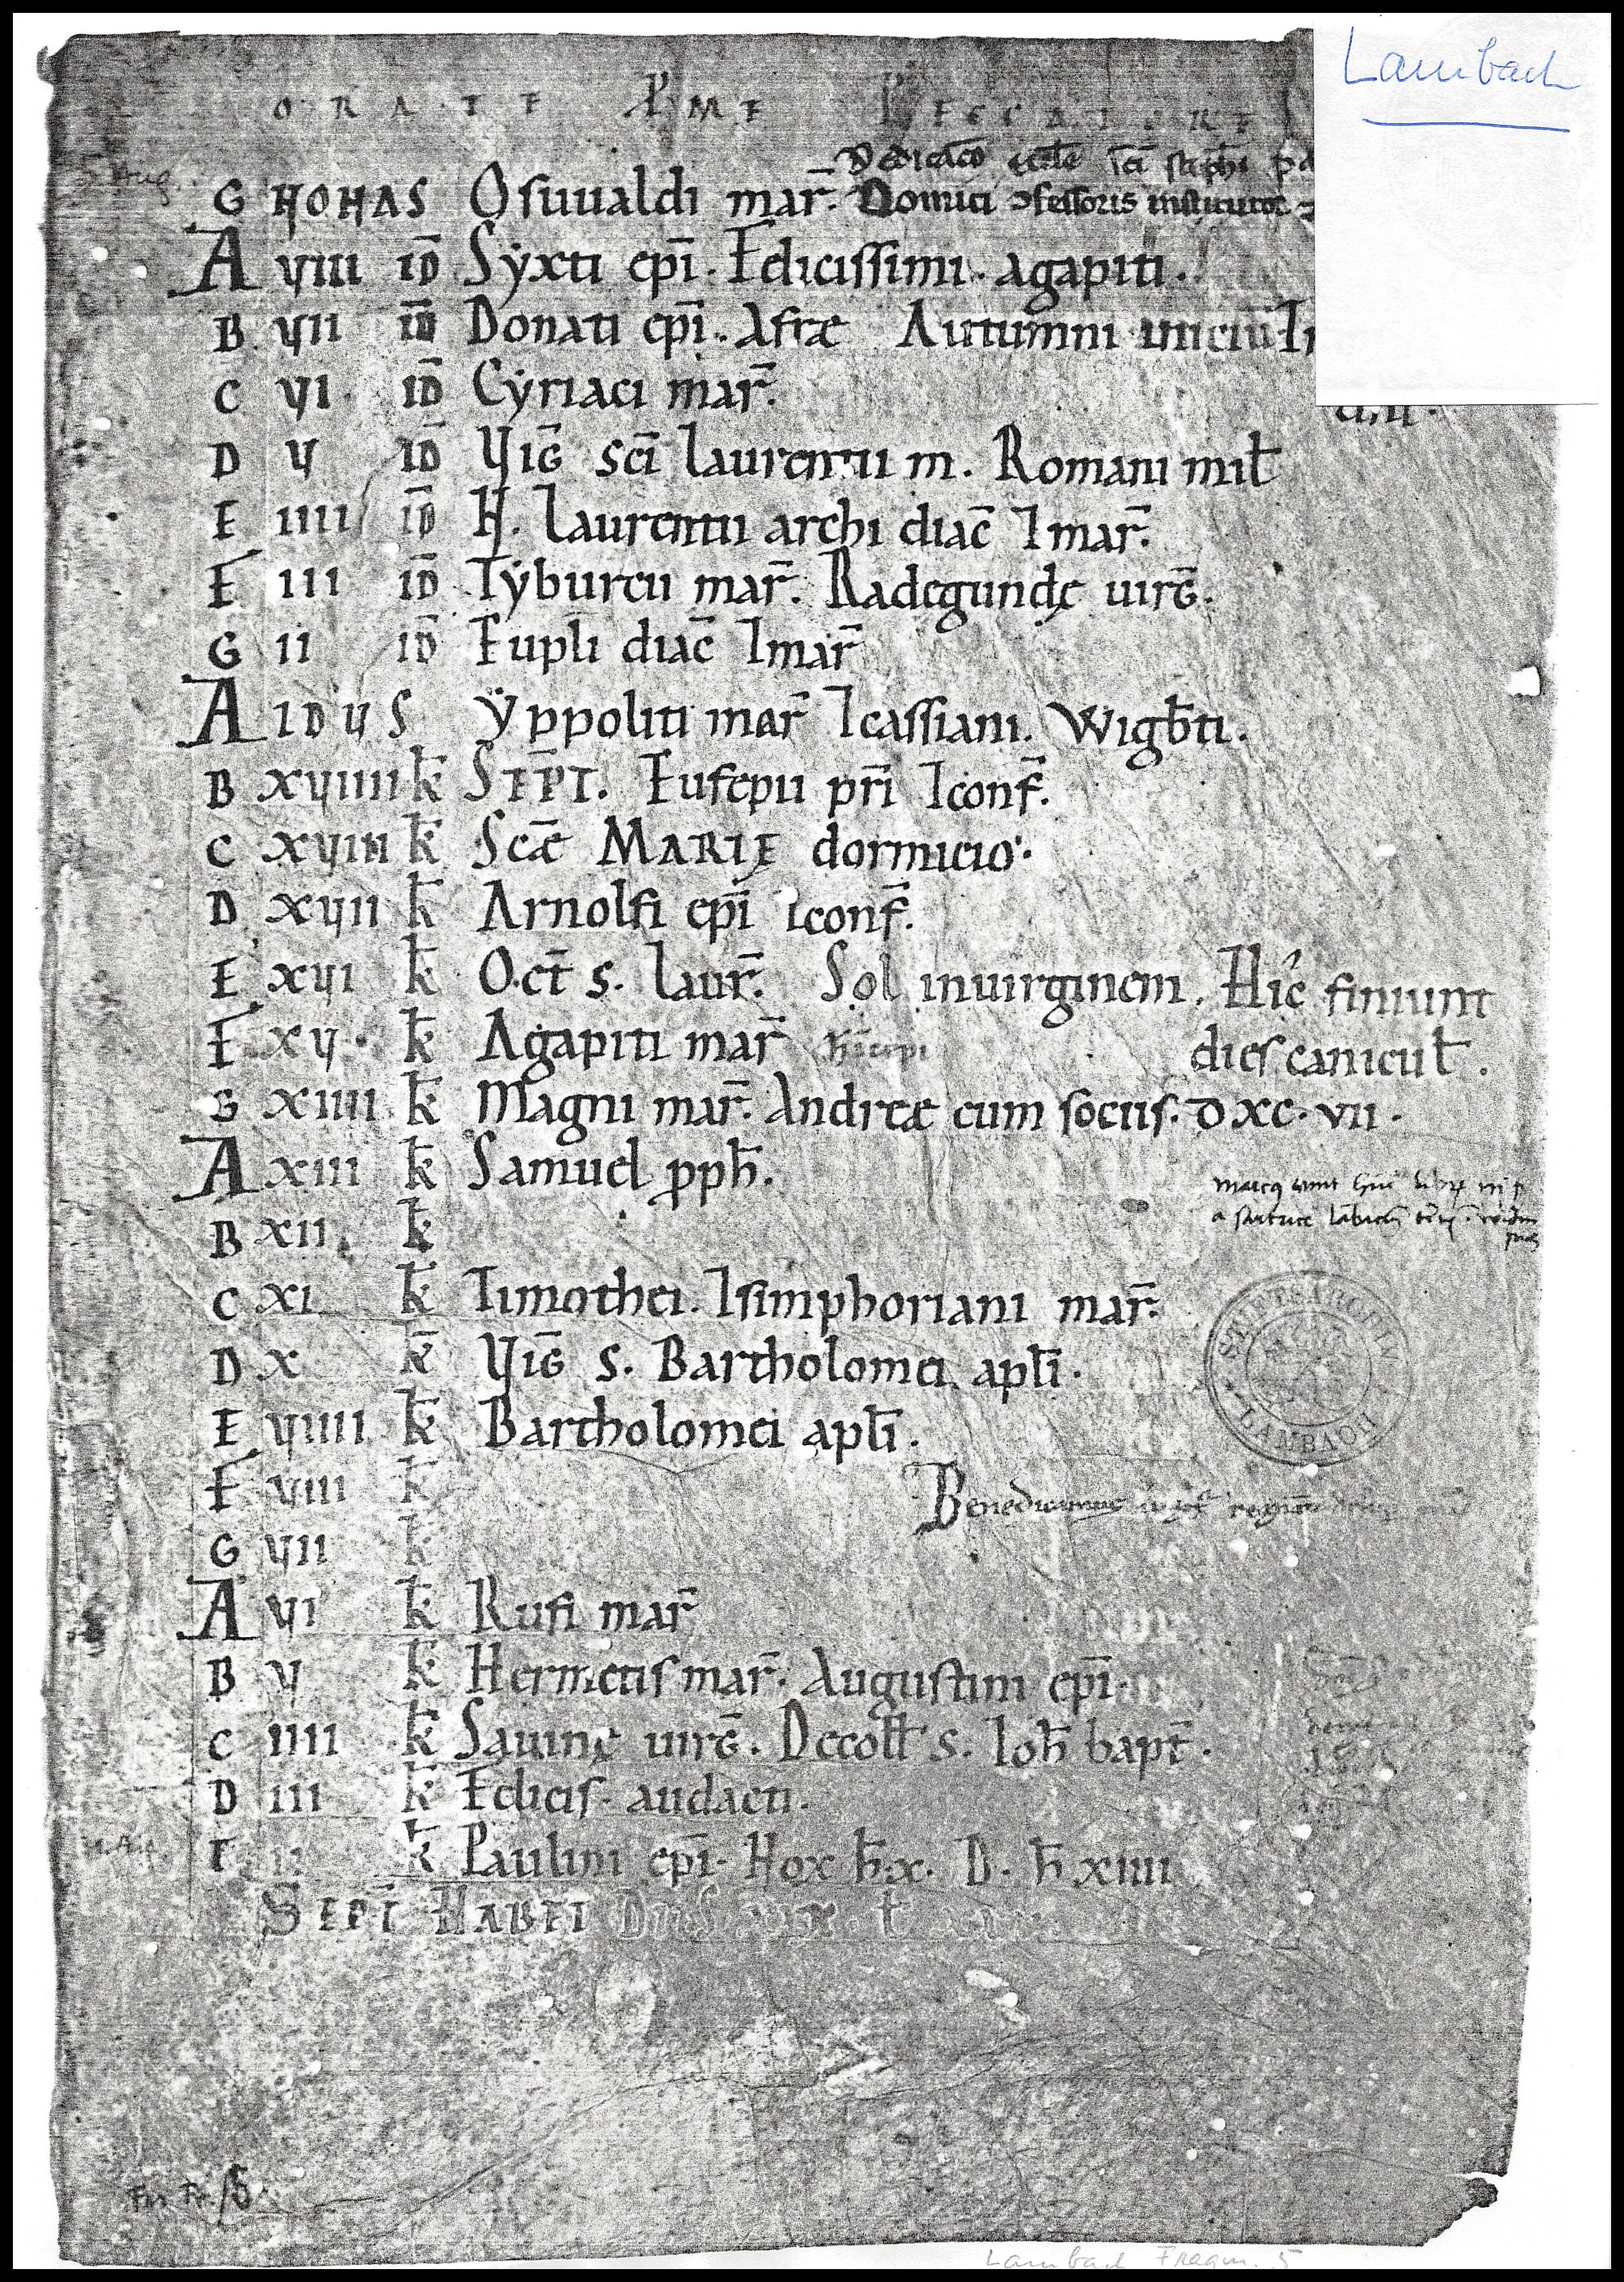 Lambach
ORATE P ME PECCATORE
5. Aug.
Dedicacō eccl̄e sc̄i steph̄i
G NONAS Osuualdi mar̄. Dominici ɔfessoris institutor
A VIII ID̄ Syxti ep̄i. Felicissimi. agapiti.
B VII ID̄ Donati ep̄i. Afræ Autumni iniciū
C VI ID̄ Cyriaci mar̄.
D V ID̄ VIG̅ sc̄i laurentii m. Romani mil̄
E IIII ID̄ N. laurentii archi diac̄ ⁊ mar̄.
F III ID̄ Tyburtii mar̄. Radegundę uirḡ.
G II ID̄ Eupli diac̄ ⁊ mar̄
A IDUS Yppoliti mar̄ ⁊ cassiani. Wigb̄ti.
B XVIIII k̄ SEPT̄. Eusepii pr̄i ⁊ conf̄.
C XVIII k̄ Sc̄æ MARIE dormicio.
D XVII k̄ Arnolfi ep̄i ⁊ conf̄.
E XVI k̄ Oct̄ s. laur̄. Sol in uirginem. Hic finiunt
F XV k̄ Agapiti mar̄ dies canicul̄.
G XIIII k̄ Magni mar̄. Andreæ cum sociis. D XC. VII.
A XIII k̄ Samuel pph̄.
B XII k̄
C XI k̄ Timothei. ⁊ simphoriani mar̄.
D X k̄ VIG̅ s. Bartholomei apl̄i.
STIFTSARCHIV LAMBACH
E VIIII k̄ Bartholomei apl̄i.
F VIII k̄ Benedicamus
G VII k̄
A VI k̄ Rufi mar̄
B V k̄ Hermetis mar̄. Augustini ep̄i.
C IIII k̄ Sauinę uirḡ. Decoll̄ s. Ioh̄ bapt̄.
D III k̄ Felicis. audacti.
E II k̄ Paulini ep̄i. Nox h̄. X. D. h̄ XIIII
SEPT̄ HABET
Lambach Fragm. 5